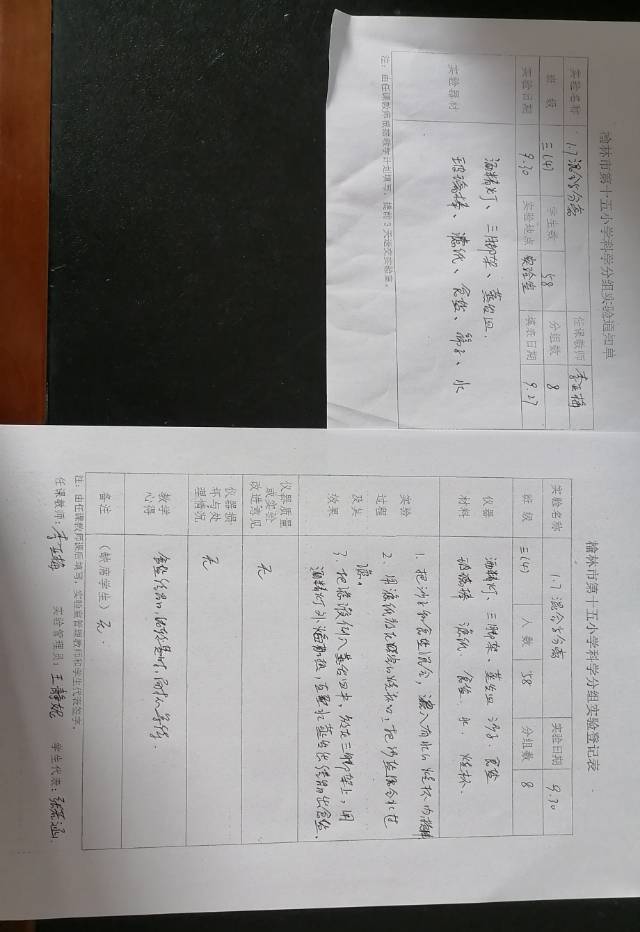 榆林市第十五小学科学分组实验通知单
实验名称 1.7 混合与分离 任课教师 李亚梅
班级 三(4) 学生数 58 分组数 8
实验日期 9.30 实验地点 实验室 填表日期 9.27
实验器材 酒精灯、三脚架、蒸发皿、
玻璃棒、滤纸、食盐、筛子、水
注：由任课教师根据教学计划填写，提前3天送交实验室。
榆林市第十五小学科学分组实验登记表
实验名称 1.7 混合与分离 实验日期 9.30
班级 三(4) 人数 58 分组数 8
仪器材料 酒精灯、三脚架、蒸发皿 沙子 食盐
玻璃棒 滤纸 食盐 水 烧杯
实验过程及其效果 1、把沙子和食盐混合，倒入有水的烧杯内搅拌
2、用滤纸 烧杯 把沙盐混合水过滤。
3、把滤液倒入蒸发皿中，放在三脚架上，用
酒精灯外焰加热，直至水蒸发 食盐。
仪器质量或实验改进意见 无
仪器损坏与处理情况 无
教学心得
备注 (缺席学生) 无.
注：由任课教师课后填写，实验室管理教师和学生代表签字。
任课教师：李亚梅 实验管理员：王静妮 学生代表：张若涵